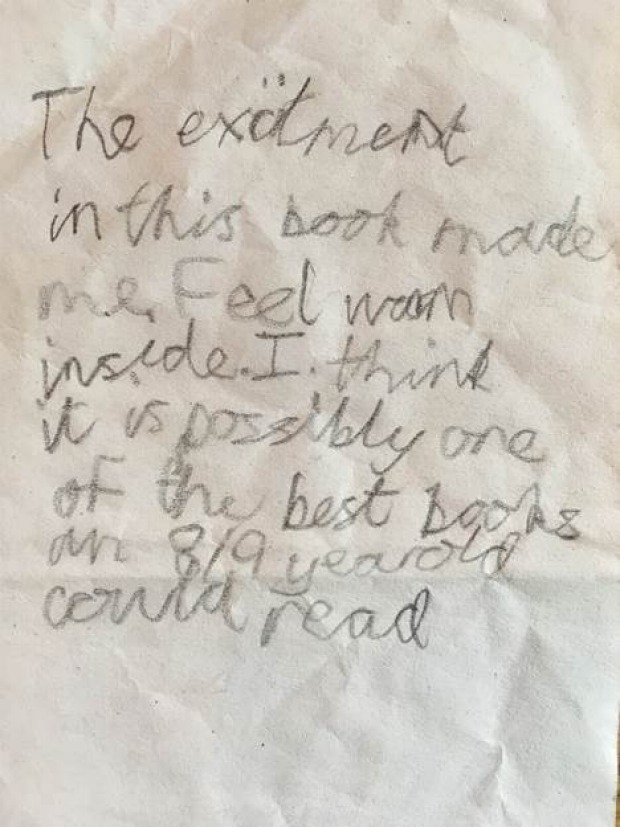 The exitment
in this book made
me Feel warm
inside. I. think
it is possibly one
of the best books
an 8/9 year old
could read